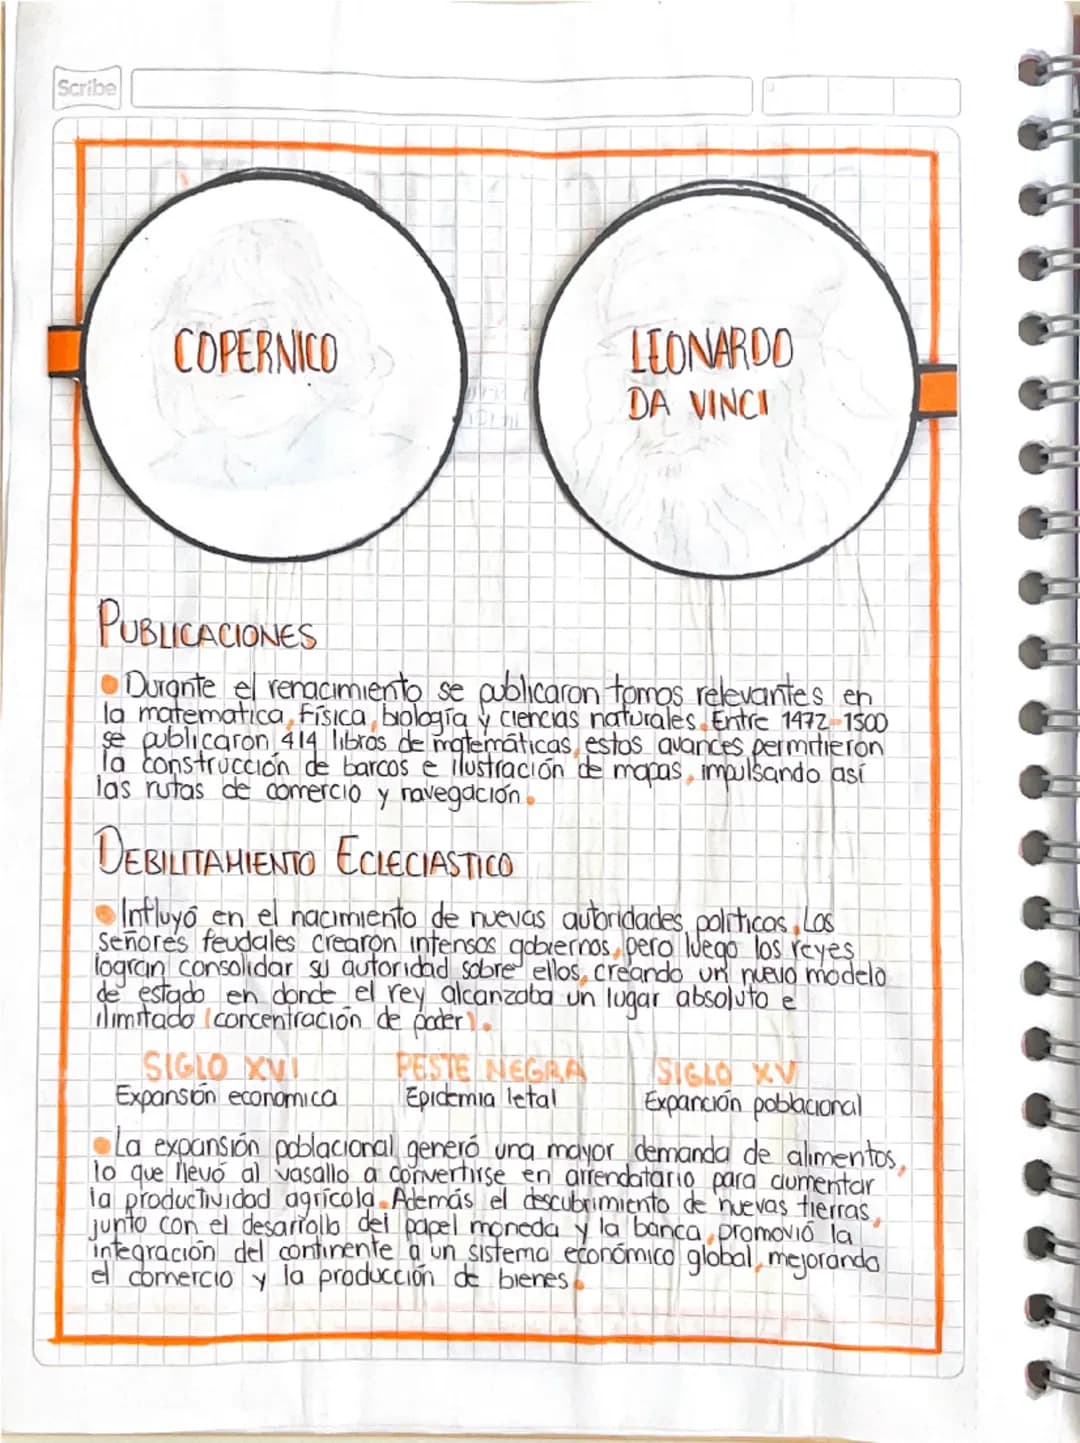 Scribe
COPERNICO
LEONARDO
DA VINCI
PUBLICACIONES
Durante el renacimiento se publicaron tomos relevantes en
la matematica, Física, biología y ciencias naturales. Entre 1472-1500
se publicaron 414 libros de matemáticas, estos avances permitieron
la construcción de barcos e ilustración de mapas, impulsando así
las rutas de comercio y navegación.
DEBILITAMIENTO ECLECIASTICO
Influyó en el nacimiento de nuevas autoridades políticas. Los
señores feudales crearon intensos gobiernos, pero luego los reyes
logran consolidar su autoridad sobre ellos, creando un nuevo modelo
de estado en donde el rey alcanzaba un lugar absoluto e
ilimitado (concentración de poder).
SIGLO XVI PESTE NEGRA SIGLO XV
Expansión economica Epidemia letal Expanción poblacional
La expansión poblacional generó una mayor demanda de alimentos,
lo que llevó al vasallo a convertirse en arrendatario para aumentar
la productividad agrícola. Además el descubrimiento de nuevas tierras,
junto con el desarrollo del papel moneda y la banca, promovió la
integración del continente a un sistema económico global, mejorando
el comercio y la producción de bienes.